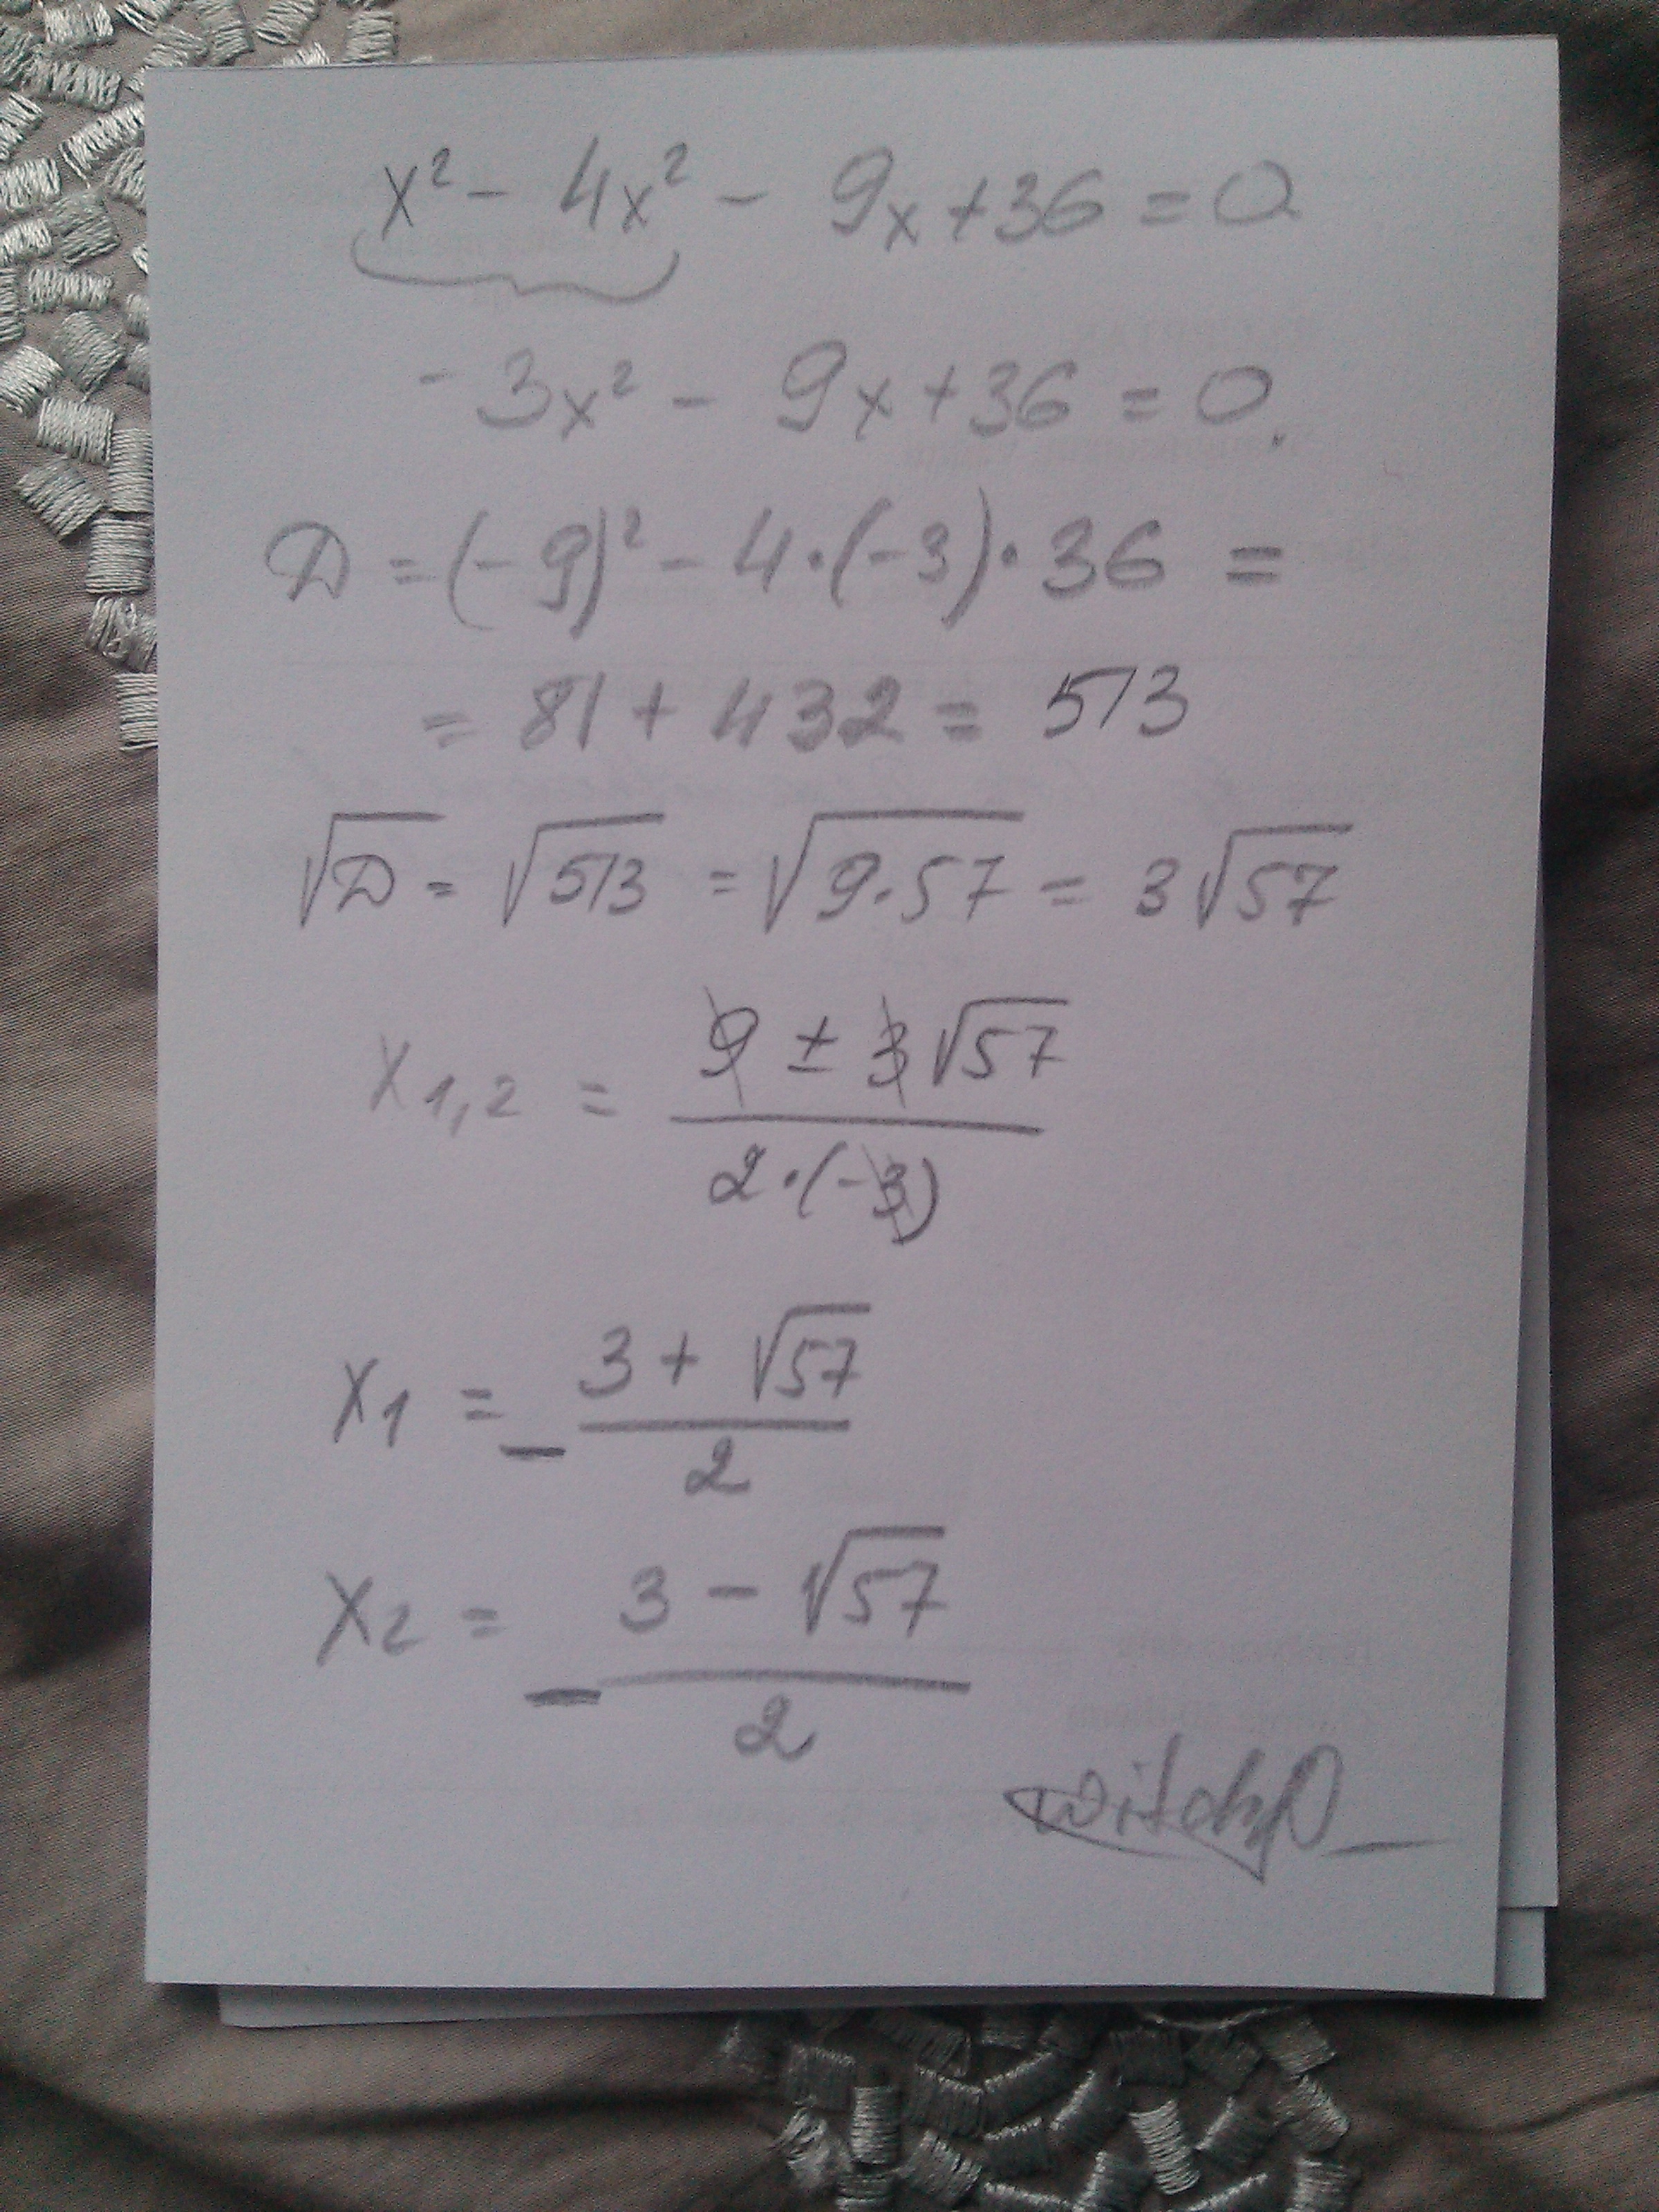 x² - 4x² - 9x + 36 = 0
-3x² - 9x + 36 = 0.
D = (-9)² - 4·(-3)·36 =
= 81 + 432 = 513
√D = √513 = √9·57 = 3√57
x₁,₂ = (9 ± 3√57) / (2·(-3))
x₁ = - (3 + √57) / 2
x₂ = - (3 - √57) / 2